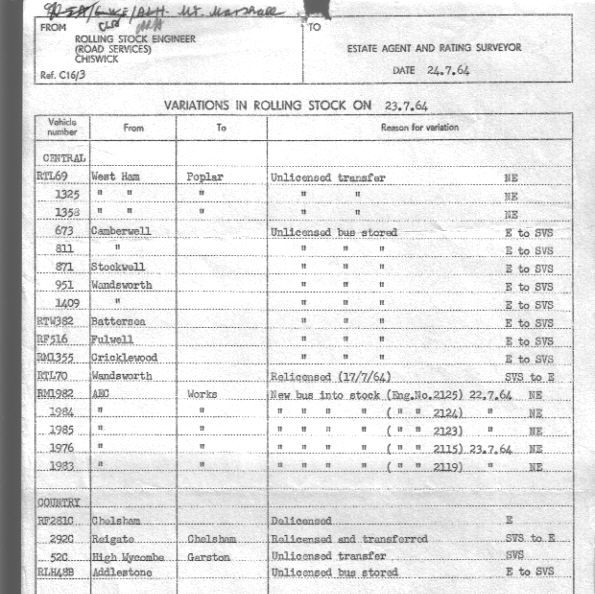 FROM
ROLLING STOCK ENGINEER
(ROAD SERVICES)
CHISWICK
Ref. C16/3
TO
ESTATE AGENT AND RATING SURVEYOR
DATE 24.7.64
VARIATIONS IN ROLLING STOCK ON 23.7.64
Vehicle number From To Reason for variation
CENTRAL
RTL69 West Ham Poplar Unlicensed transfer NE
1325 " " " " " NE
1358 " " " " " NE
673 Camberwell Unlicensed bus stored E to SVS
811 " " " " E to SVS
871 Stockwell " " " E to SVS
951 Wandsworth " " " E to SVS
1409 " " " " E to SVS
RTW382 Battersea " " " E to SVS
RF516 Fulwell " " " E to SVS
RM1355 Cricklewood " " " E to SVS
RTL70 Wandsworth Relicensed (17/7/64) SVS to E
RM1982 AEC Works New bus into stock (Eng.No.2125) 22.7.64 NE
1984 " " " " " " ( " " 2124) " NE
1985 " " " " " " ( " " 2123) " NE
1976 " " " " " " ( " " 2115) 23.7.64 NE
1983 " " " " " " ( " " 2119) " NE
COUNTRY
RF281C Chelsham Delicensed E
292C Reigate Chelsham Relicensed and transferred SVS to E
52C High Wycombe Garston Unlicensed transfer SVS
RLH48B Addlestone Unlicensed bus stored E to SVS